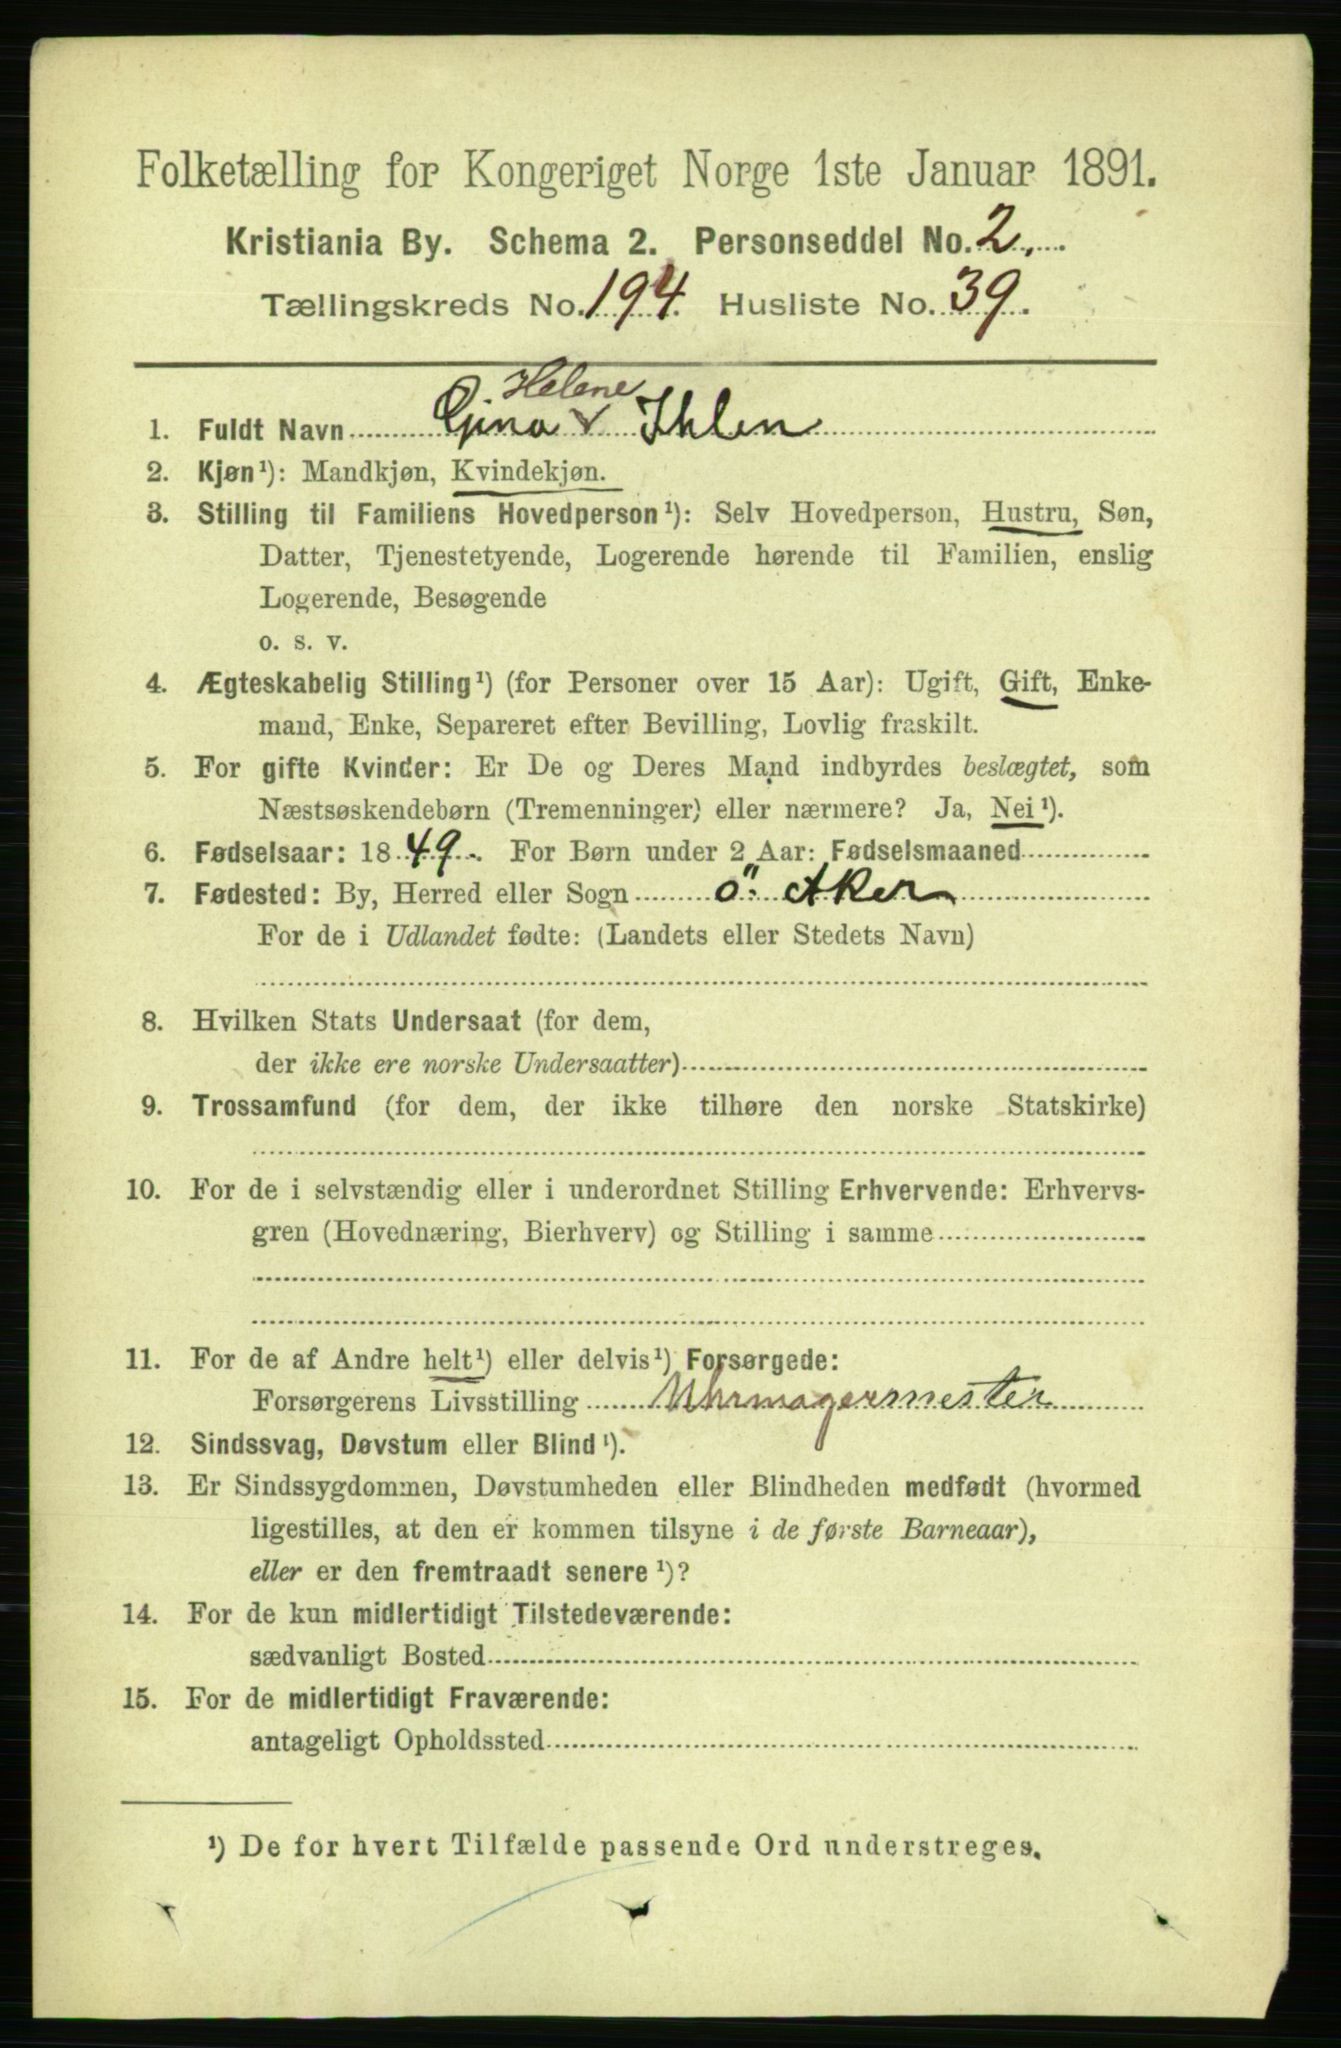 Folketælling for Kongeriget Norge 1ste Januar 1891.
Kristiania By. Schema 2. Personseddel No. 2.
Tællingskreds No. 194. Husliste No. 39.
Helene
1. Fuldt Navn Gina v Ihlen
2. Kjøn¹): Mandkjøn, Kvindekjøn.
3. Stilling til Familiens Hovedperson¹): Selv Hovedperson, Hustru, Søn,
Datter, Tjenestetyende, Logerende hørende til Familien, enslig
Logerende, Besøgende
o. s. v.
4. Ægteskabelig Stilling¹) (for Personer over 15 Aar): Ugift, Gift, Enke-
mand, Enke, Separeret efter Bevilling, Lovlig fraskilt.
5. For gifte Kvinder: Er De og Deres Mand indbyrdes beslægtet, som
Næstsøskendebørn (Tremenninger) eller nærmere? Ja, Nei¹).
6. Fødselsaar: 1849. For Børn under 2 Aar: Fødselsmaaned
7. Fødested: By, Herred eller Sogn Ö. Aker
For de i Udlandet fødte: (Landets eller Stedets Navn)
8. Hvilken Stats Undersaat (for dem,
der ikke ere norske Undersaatter)
9. Trossamfund (for dem, der ikke tilhøre den norske Statskirke)
10. For de i selvstændig eller i underordnet Stilling Erhvervende: Erhvervs-
gren (Hovednæring, Bierhverv) og Stilling i samme
11. For de af Andre helt¹) eller delvis¹) Forsørgede:
Forsørgerens Livsstilling Uhrmagermester
12. Sindssvag, Døvstum eller Blind¹).
13. Er Sindssygdommen, Døvstumheden eller Blindheden medfødt (hvormed
ligestilles, at den er kommen tilsyne i de første Barneaar),
eller er den fremtraadt senere¹)?
14. For de kun midlertidigt Tilstedeværende:
sædvanligt Bosted
15. For de midlertidigt Fraværende:
antageligt Opholdssted
¹) De for hvert Tilfælde passende Ord understreges.